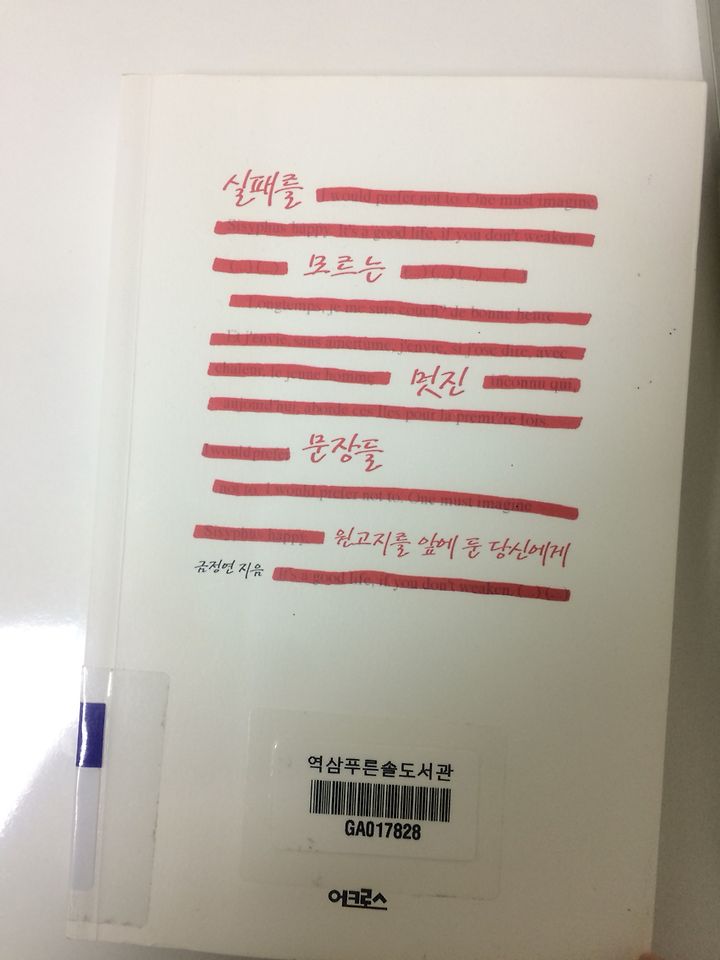 실패를 I would prefer not to. One must imagine
Sisyphus happy. It's a good life, if you don't weaken.
모르는
Longtemps, je me suis couch? de bonne heure
Et j'envie, sans amertume, j'envie, si j'ose dire, avec
chaleur, le jeune homme 멋진 inconnu qui,
aujourd'hui, aborde ces Iles pour la premi?re fois.
I would prefer 문장들
not to. I would prefer not to. One must imagine
Sisyphus happy. 원고지를 앞에 둔 당신에게
금정연 지음 It's a good life, if you don't weaken. (...) (...)
역삼푸른솔도서관
GA017828
어크로스